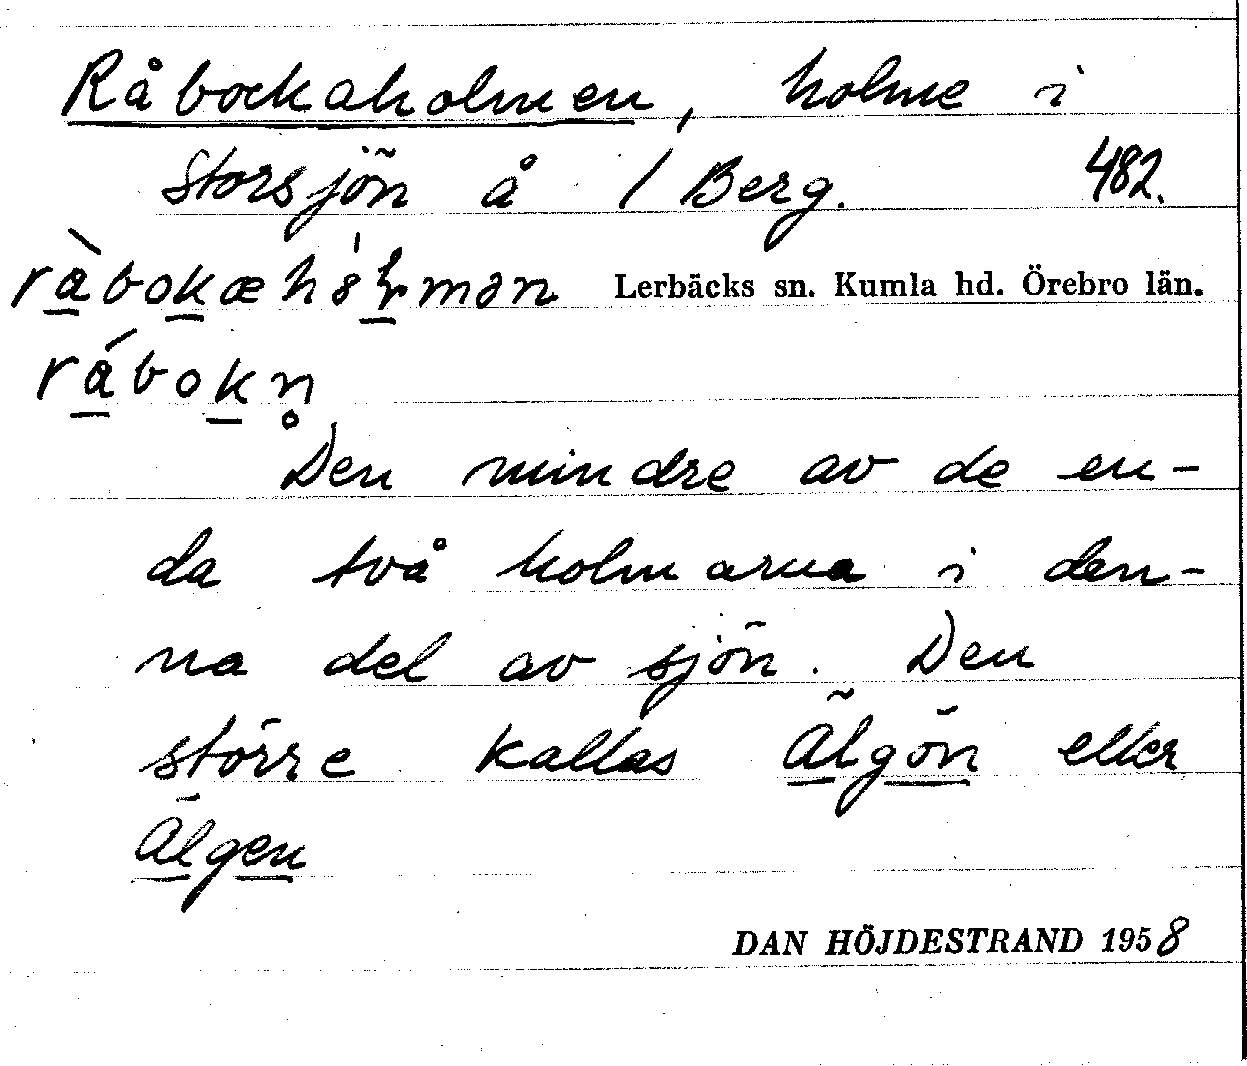 Råbockaholmen, holme i
Storsjön å 1 Berg. 482.
Lerbäcks sn. Kumla hd. Örebro län.
Den mindre av de en-
da två holmarna i den-
na del av sjön. Den
större kallas Älgön eller
Älgen
DAN HÖJDESTRAND 1958